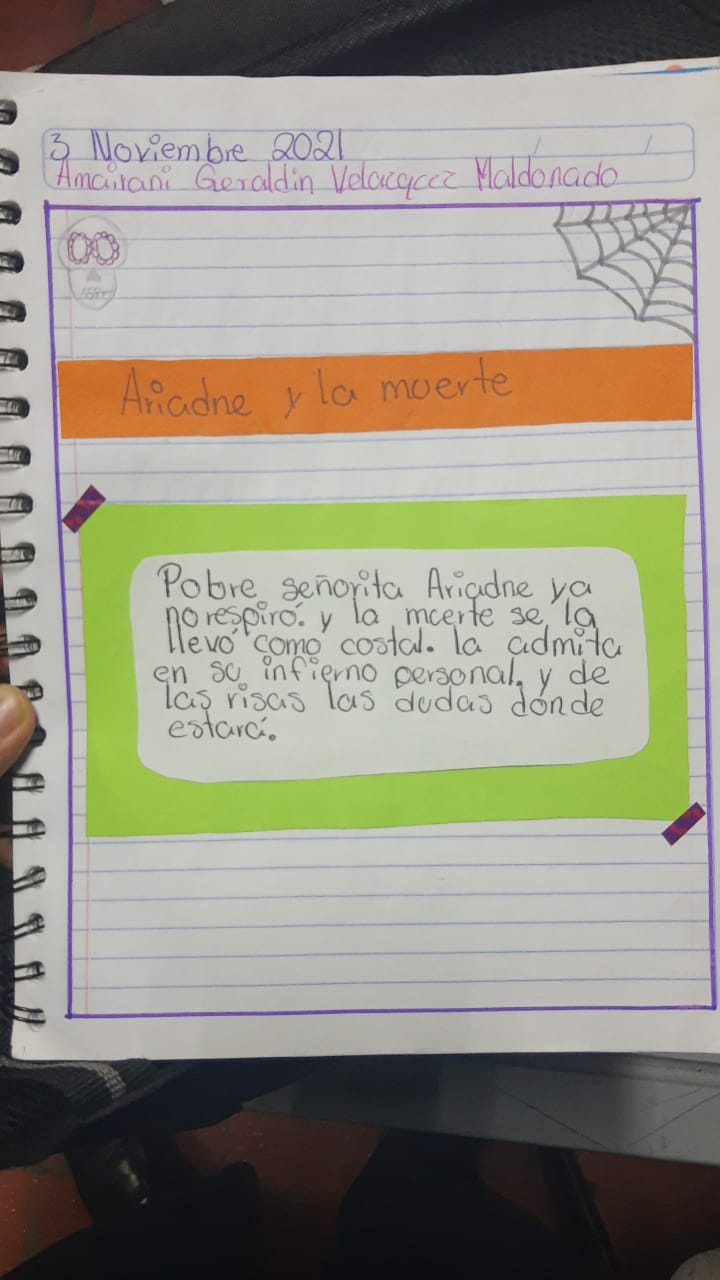 3 Noviembre 2021
Amairani Geraldin Velazquez Maldonado
Ariadne y la muerte
Pobre señorita Ariadne ya
no respiró. y la muerte se la
llevó como costal. la admita
en su infierno personal. y de
las risas las dudas dónde
estará.